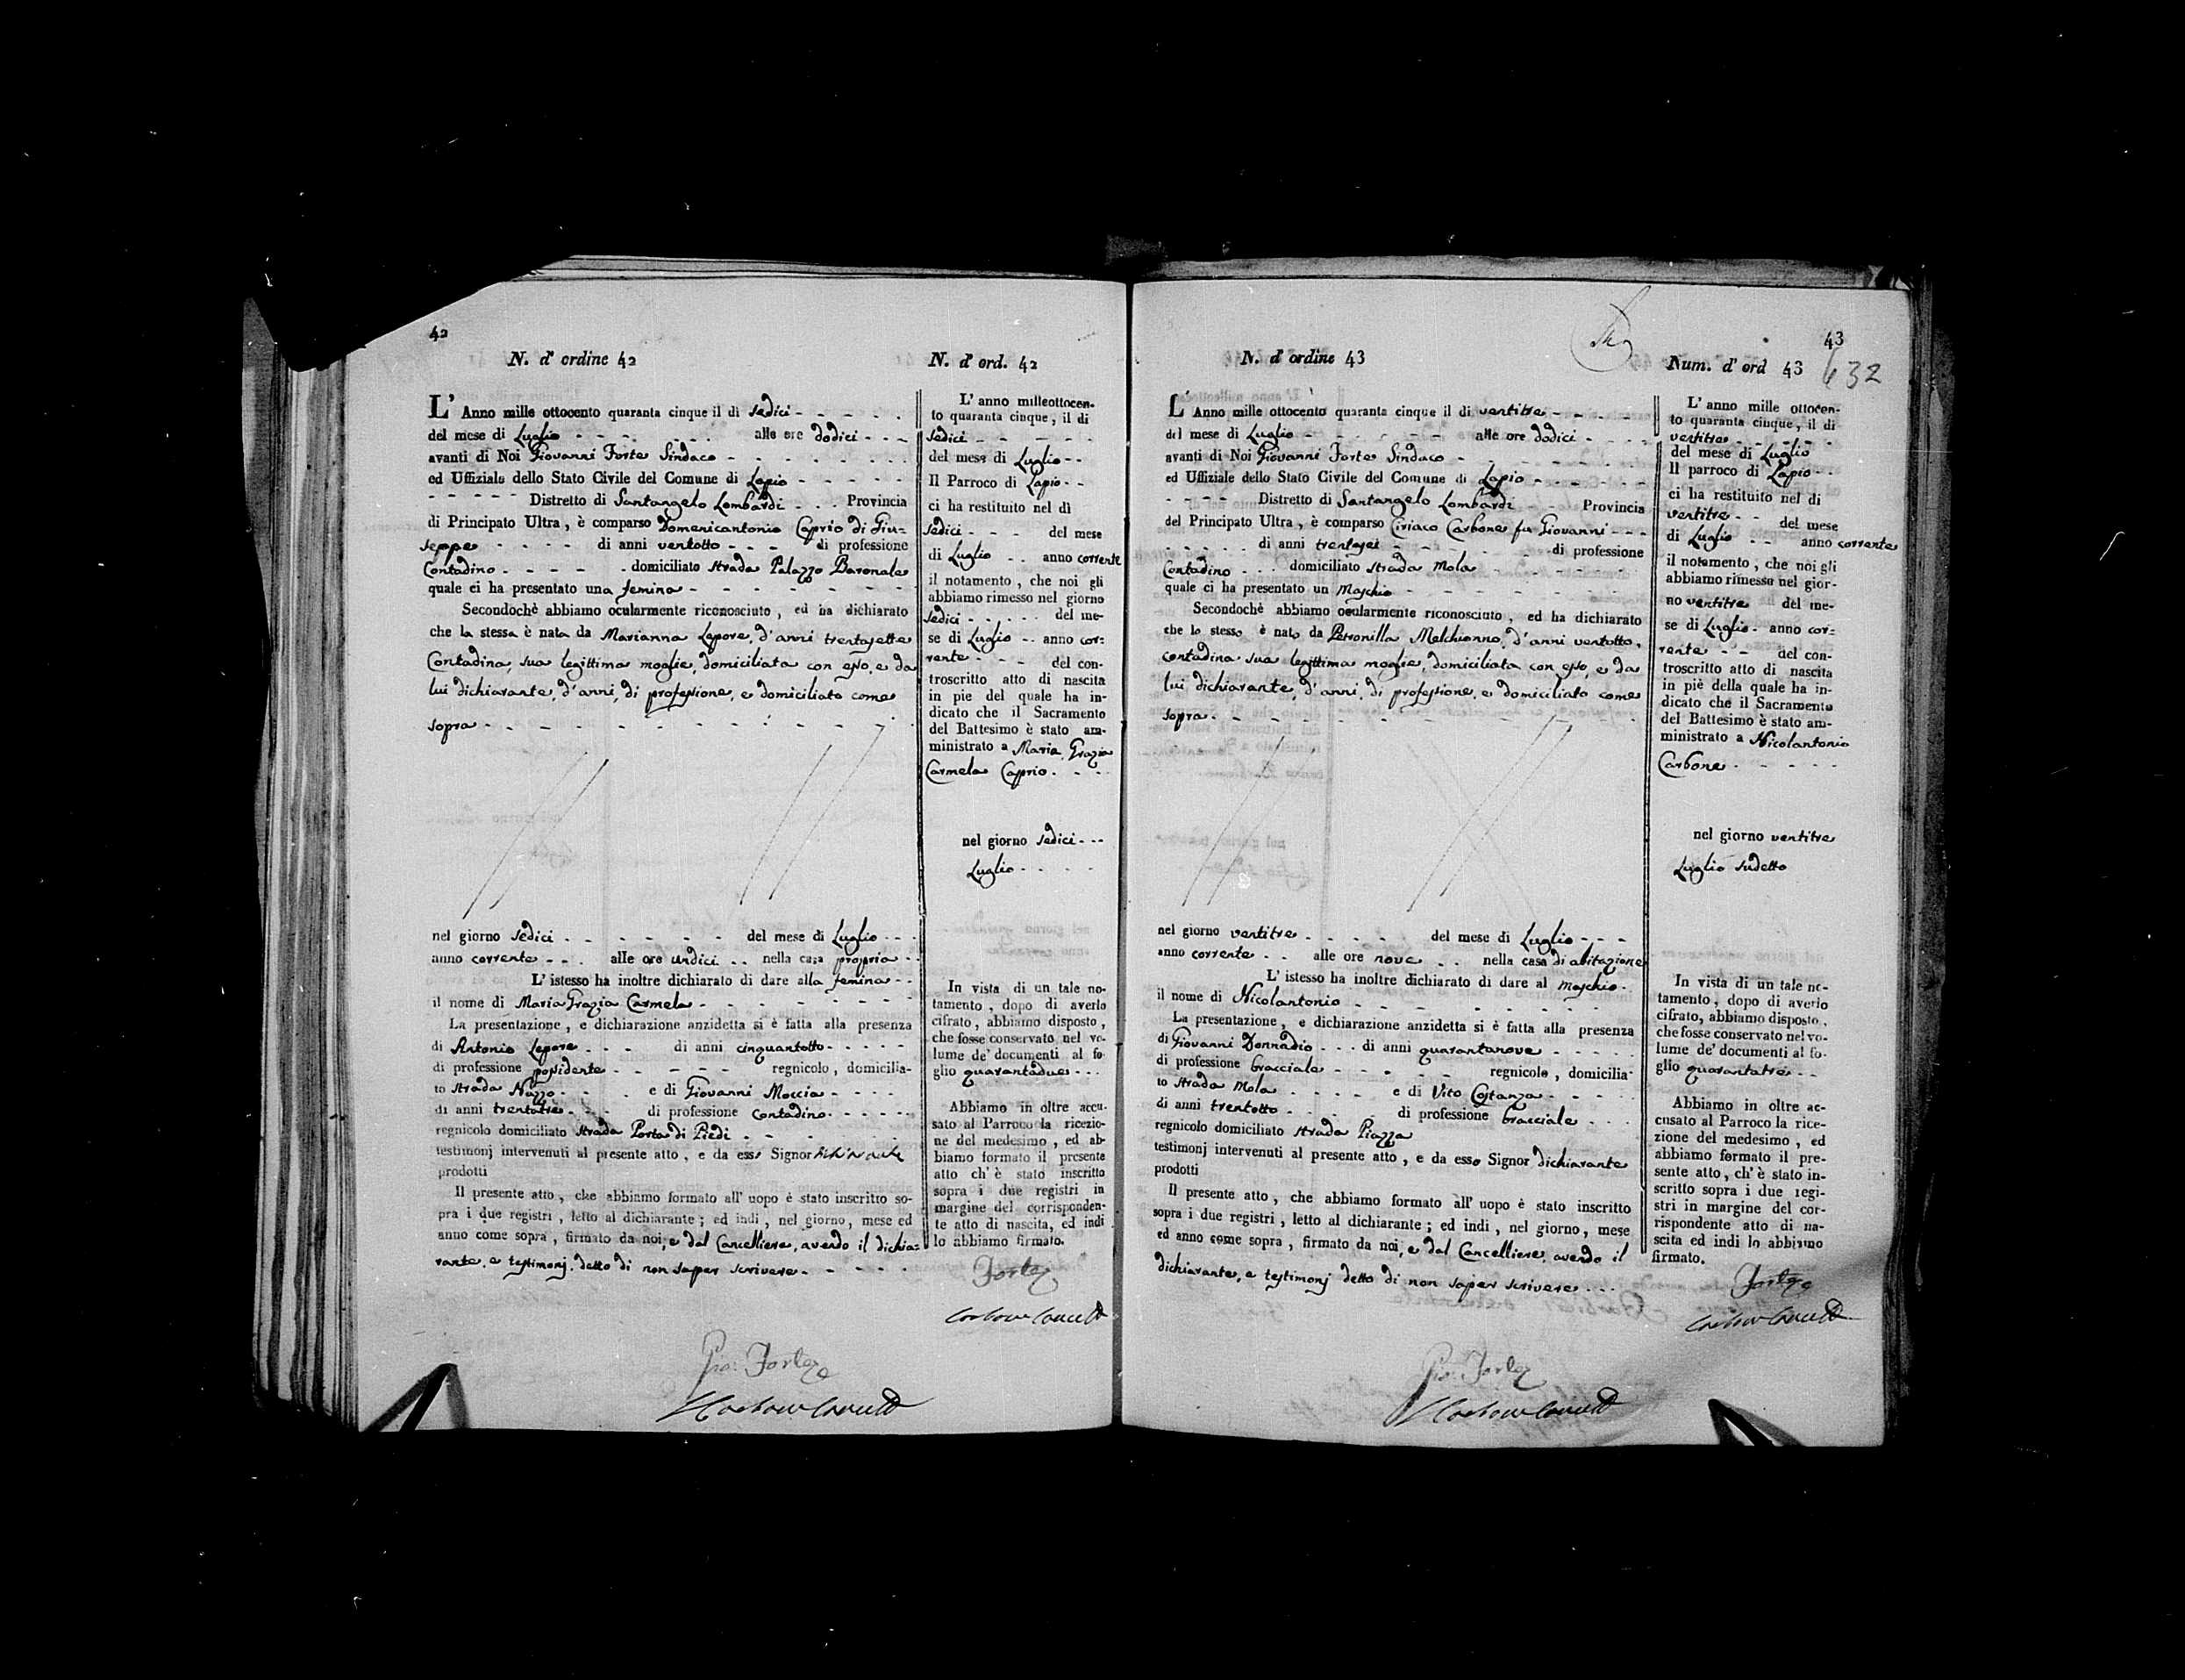 42
N. d' ordine 42
L' Anno mille ottocento quaranta cinque il dì sedici - - - - -
del mese di Luglio - - - - - alle ore dodici - - -
avanti di Noi Giovanni Forte Sindaco - - - - - - - -
ed Uffiziale dello Stato Civile del Comune di Lapio - - - - -
- - - - - Distretto di Santangelo Lombardi - - . Provincia
di Principato Ultra, è comparso Domenicantonio Caprio di Giu=
seppe - - - - di anni ventotto - - - di professione
Contadino - - - - - domiciliato strada Palazzo Baronale
quale ci ha presentato una femina - - - - - - -
Secondochè abbiamo ocularmente riconosciuto, ed ha dichiarato
che la stessa è nata da Marianna Lepore, d'anni trentasette
Contadina, sua legittima moglie, domiciliata con esso, e da
lui dichiarante, d'anni, di professione, e domiciliato come
sopra - - - - - - - - - - - -
nel giorno sedici - - - - - - del mese di Luglio - - -
anno corrente - - . alle ore undici . . nella casa propria - -
L' istesso ha inoltre dichiarato di dare alla femina - -
il nome di Maria Grazia Carmela - - - - - - - -
La presentazione, e dichiarazione anzidetta si è fatta alla presenza
di Antonio Lepore - - - di anni cinquantotto - - - - -
di professione possidente - - - - - regnicolo, domicilia-
to strada Nazzo - - - . e di Giovanni Moccia - - - -
di anni trentatrè - - - di professione Contadino - - - - -
regnicolo domiciliato strada Porta di Piedi - - - - -
testimonj intervenuti al presente atto, e da esso Signor dichiarante
prodotti
Il presente atto, che abbiamo formato all' uopo è stato inscritto so-
pra i due registri, letto al dichiarante; ed indi, nel giorno, mese ed
anno come sopra, firmato da noi, e dal Cancelliere, avendo il dichia=
rante, e testimonj, detto di non saper scrivere - - - - -
Gio: Forte
N. d' ord. 42
L' anno milleottocen-
to quaranta cinque, il di
sedici - - - - - -
del mese di Luglio - -
Il Parroco di Lapio - -
ci ha restituito nel dì
sedici - - - del mese
di Luglio . . anno corrente
il notamento, che noi gli
abbiamo rimesso nel giorno
sedici - - - - - del me-
se di Luglio - - anno cor=
rente - - - del con-
troscritto atto di nascita
in piè del quale ha in-
dicato che il Sacramento
del Battesimo è stato am-
ministrato a Maria Grazia
Carmela Caprio - - - -
nel giorno sedici - - -
Luglio - - - - -
In vista di un tale no-
tamento, dopo di averlo
cifrato, abbiamo disposto,
che fosse conservato nel vo-
lume de' documenti al fo-
glio quarantadue - - -
Abbiamo in oltre accu-
sato al Parroco la ricezio-
ne del medesimo, ed ab-
biamo formato il presente
atto ch' è stato inscritto
sopra i due registri in
margine del corrisponden-
te atto di nascita, ed indi
lo abbiamo firmato.
Forte
43
N. d' ordine 43
L' Anno mille ottocento quaranta cinque il di ventitre - - - -
del mese di Luglio - - - - - - alle ore dodici - - - -
avanti di Noi Giovanni Forte Sindaco - - - - - - -
ed Uffiziale dello Stato Civile del Comune di Lapio - - - - - -
- - - - Distretto di Santangelo Lombardi - - Provincia
del Principato Ultra, è comparso Ciriaco Carbone fu Giovanni - - -
- - - - - di anni trentasei - - - - - - di professione
Contadino - - - domiciliato strada Mola - - - - - -
quale ci ha presentato un Maschio - - - - - - -
Secondochè abbiamo ocularmente riconosciuto, ed ha dichiarato
che lo stesso è nato da Petronilla Melchionno, d'anni ventotto,
contadina sua legittima moglie, domiciliata con esso, e da
lui dichiarante, d'anni, di professione, e domiciliato come
sopra - - - - - - - - - - - -
nel giorno ventitre - - - - - del mese di Luglio - - - -
anno corrente . . alle ore nove . . nella casa di abitazione
L' istesso ha inoltre dichiarato di dare al maschio -
il nome di Nicolantonio - - - - - - - -
La presentazione, e dichiarazione anzidetta si è fatta alla presenza
di Giovanni Donnadio - - - di anni quarantanove - - - - -
di professione bracciale - - - - - regnicolo, domicilia-
to strada Mola - - - - e di Vito Costanza - - - - -
di anni trentotto - - - - di professione bracciale - - -
regnicolo domiciliato strada Piazza
testimonj intervenuti al presente atto, e da esso Signor dichiarante
prodotti
Il presente atto, che abbiamo formato all' uopo è stato inscritto
sopra i due registri, letto al dichiarante; ed indi, nel giorno, mese
ed anno come sopra, firmato da noi, e dal Cancelliere, avendo il
dichiarante, e testimonj detto di non saper scrivere - - -
Gio: Forte
Num. d' ord 43
632
L' anno mille ottocen-
to quaranta cinque, il di
ventitre - - - - - -
del mese di Luglio
Il parroco di Lapio - -
ci ha restituito nel di
ventitre - - del mese
di Luglio - - anno corrente
il notamento, che noi gli
abbiamo rimesso nel gior-
no ventitre del me-
se di Luglio - anno cor=
rente - - del con-
troscritto atto di nascita
in piè della quale ha in-
dicato che il Sacramento
del Battesimo è stato am-
ministrato a Nicolantonio
Carbone - - - - -
nel giorno ventitre
Luglio sudetto
In vista di un tale no-
tamento, dopo di averlo
cifrato, abbiamo disposto,
che fosse conservato nel vo-
lume de' documenti al fo-
glio quarantatre - -
Abbiamo in oltre ac-
cusato al Parroco la rice-
zione del medesimo, ed
abbiamo formato il pre-
sente atto, ch' è stato in-
scritto sopra i due regi-
stri in margine del cor-
rispondente atto di na-
scita ed indi lo abbiamo
firmato.
Forte